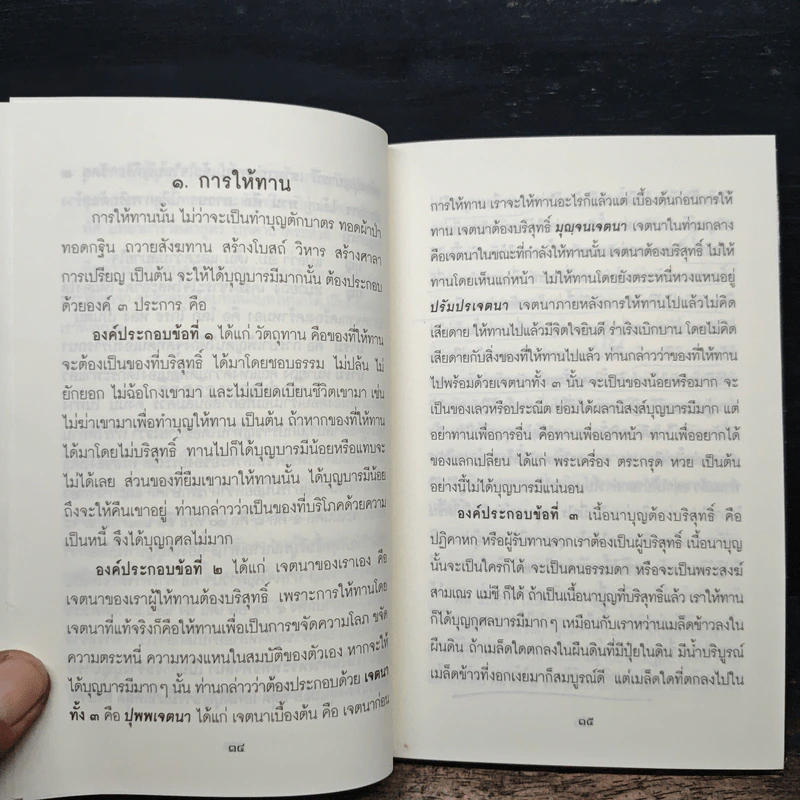 ๑. การให้ทาน
การให้ทานนั้น ไม่ว่าจะเป็นทำบุญตักบาตร ทอดผ้าป่า
ทอดกฐิน ถวายสังฆทาน สร้างโบสถ์ วิหาร สร้างศาลา
การเปรียญ เป็นต้น จะให้ได้บุญบารมีมากนั้น ต้องประกอบ
ด้วยองค์ ๓ ประการ คือ
องค์ประกอบข้อที่ ๑ ได้แก่ วัตถุทาน คือของที่ให้ทาน
จะต้องเป็นของที่บริสุทธิ์ ได้มาโดยชอบธรรม ไม่ปล้น ไม่
ยักยอก ไม่ฉ้อโกงเขามา และไม่เบียดเบียนชีวิตเขามา เช่น
ไม่ฆ่าเขามาเพื่อทำบุญให้ทาน เป็นต้น ถ้าหากของที่ให้ทาน
ได้มาโดยไม่บริสุทธิ์ ทานไปก็ได้บุญบารมีน้อยหรือแทบจะ
ไม่ได้เลย ส่วนของที่ยืมเขามาให้ทานนั้น ได้บุญบารมีน้อย
ถึงจะให้คืนเขาอยู่ ท่านกล่าวว่าเป็นของที่บริโภคด้วยความ
เป็นหนี้ จึงได้บุญกุศลไม่มาก
องค์ประกอบข้อที่ ๒ ได้แก่ เจตนาของเราเอง คือ
เจตนาของเราผู้ให้ทานต้องบริสุทธิ์ เพราะการให้ทานโดย
เจตนาที่แท้จริงก็คือให้ทานเพื่อเป็นการขจัดความโลภ ขจัด
ความตระหนี่ ความหวงแหนในสมบัติของตัวเอง หากจะให้
ได้บุญบารมีมากๆ นั้น ท่านกล่าวว่าต้องประกอบด้วย เจตนา
ทั้ง ๓ คือ ปุพพเจตนา ได้แก่ เจตนาเบื้องต้น คือ เจตนาก่อน
๑๔
การให้ทาน เราจะให้ทานอะไรก็แล้วแต่ เบื้องต้นก่อนการให้
ทาน เจตนาต้องบริสุทธิ์ มุญจนเจตนา เจตนาในท่ามกลาง
คือเจตนาในขณะที่กำลังให้ทานนั้น เจตนาต้องบริสุทธิ์ ไม่ให้
ทานโดยเห็นแก่หน้า ไม่ให้ทานโดยยังตระหนี่หวงแหนอยู่
ปรัมปรเจตนา เจตนาภายหลังการให้ทานไปแล้วไม่คิด
เสียดาย ให้ทานไปแล้วมีจิตใจยินดี ร่าเริงเบิกบาน โดยไม่คิด
เสียดายกับสิ่งของที่ให้ทานไปแล้ว ท่านกล่าวว่าของที่ให้ทาน
ไปพร้อมด้วยเจตนาทั้ง ๓ นั้น จะเป็นของน้อยหรือมาก จะ
เป็นของเลวหรือประณีต ย่อมได้ผลานิสงส์บุญบารมีมาก แต่
อย่าทานเพื่อการอื่น คือทานเพื่อเอาหน้า ทานเพื่ออยากได้
ของแลกเปลี่ยน ได้แก่ พระเครื่อง ตระกรุด หวย เป็นต้น
อย่างนี้ไม่ได้บุญบารมีแน่นอน
องค์ประกอบข้อที่ ๓ เนื้อนาบุญต้องบริสุทธิ์ คือ
ปฏิคาหก หรือผู้รับทานจากเราต้องเป็นผู้บริสุทธิ์ เนื้อนาบุญ
นั้นจะเป็นใครก็ได้ จะเป็นคนธรรมดา หรือจะเป็นพระสงฆ์
สามเณร แม่ชี ก็ได้ ถ้าเป็นเนื้อนาบุญที่บริสุทธิ์แล้ว เราให้ทาน
ก็ได้บุญกุศลบารมีมากๆ เหมือนกับเราหว่านเมล็ดข้าวลงใน
ผืนดิน ถ้าเมล็ดใดตกลงในผืนดินที่มีปุ๋ยในดิน มีน้ำบริบูรณ์
เมล็ดข้าวที่งอกเงยมาก็สมบูรณ์ดี แต่เมล็ดใดที่ตกลงไปใน
๑๕